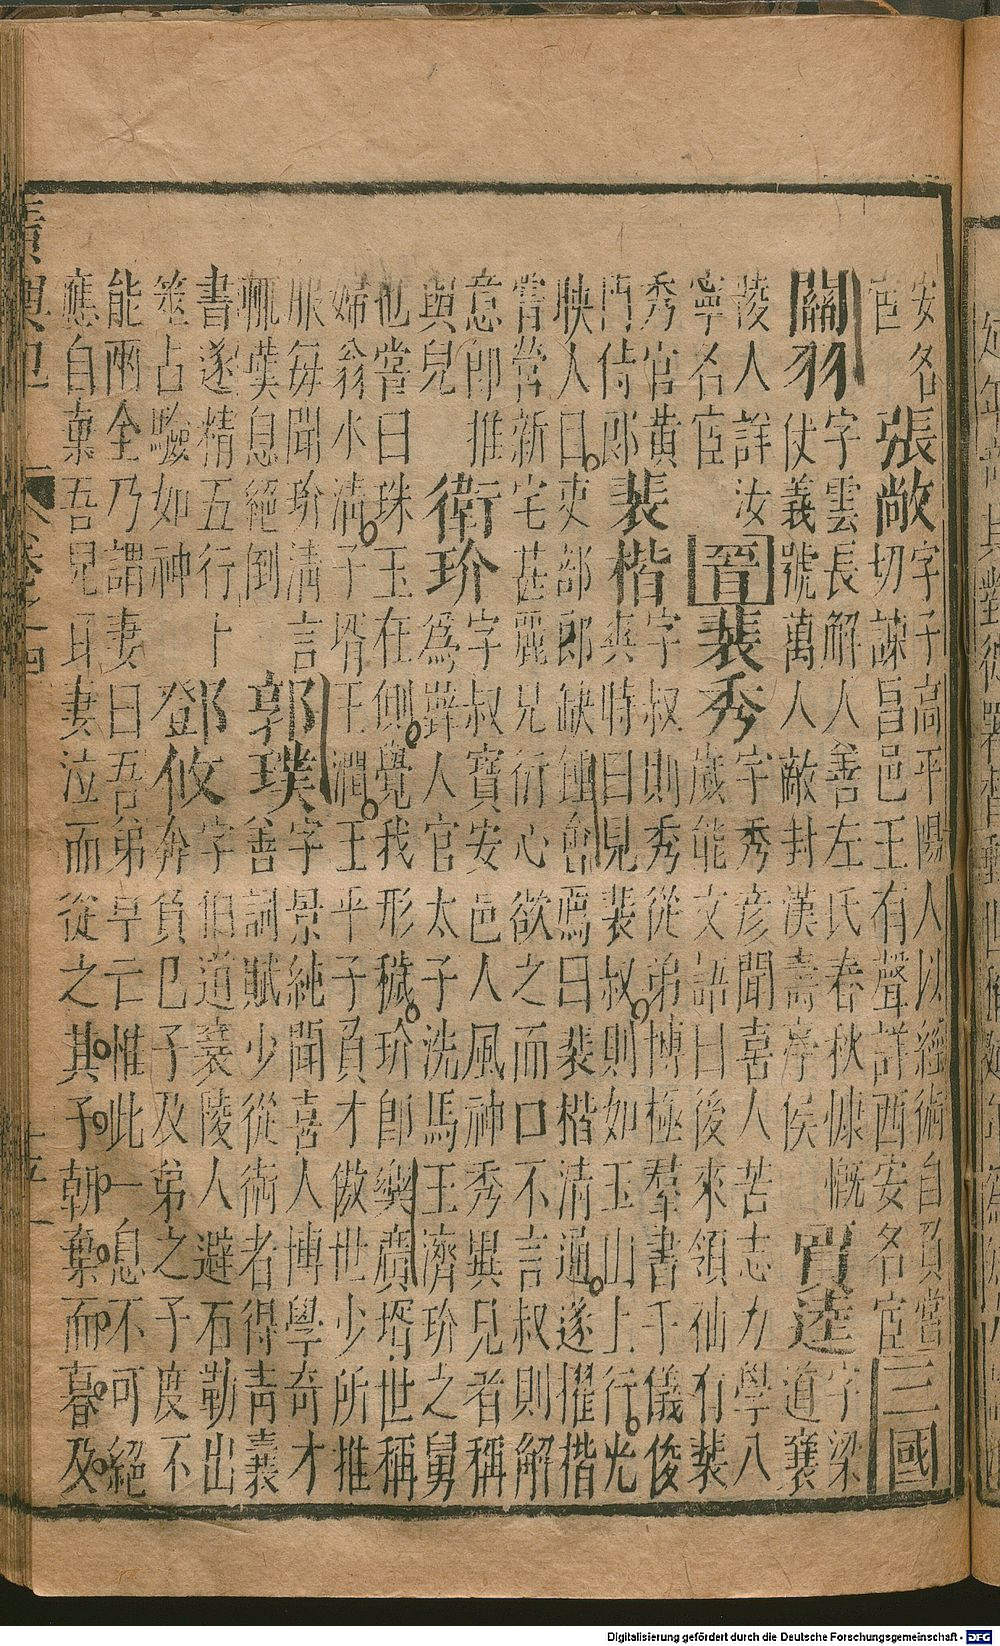 安名
宦
張敞
字子高平陽人以經術自負嘗
切諫昌邑王有聲詳西安名宦
三國
關羽
字雲長解人善左氏春秋慷慨
仗義號萬人敵封漢壽亭侯
賈逵
字梁
道襄
陵人詳汝
寧名宦
晉
裴秀
字秀彥聞喜人苦志力學八
歲能文語曰後來領袖有裴
秀官黃
門侍郎
裴楷
字叔則秀從弟博極羣書千儀俊
爽時曰見裴叔則如玉山上行光
映人曰吏部郎缺鍾會薦曰裴楷清通遂擢楷
嘗營新宅甚麗兄衍心欲之而口不言叔則解
意卽推
與兒
衛玠
字叔寶安邑人風神秀異兒者稱
為璧人官太子洗馬王濟玠之舅
也嘗曰珠玉在側覺我形穢玠卽樂廣壻世稱
婦翁水清子壻玉潤王平子負才傲世少所推
服每聞玠清言
輒歎息絕倒
郭璞
字景純聞喜人博學奇才
善詞賦少從術者得青囊
書遂精五行卜
筮占驗如神
鄧攸
字伯道襄陵人避石勒出
奔負己子及弟之子度不
能兩全乃謂妻曰吾弟早亡惟此一息不可絕
應自棄吾兒耳妻泣而從之其子朝棄而暮及
廣輿記
卷之四
Digitalisierung gefördert durch die Deutsche Forschungsgemeinschaft - DFG